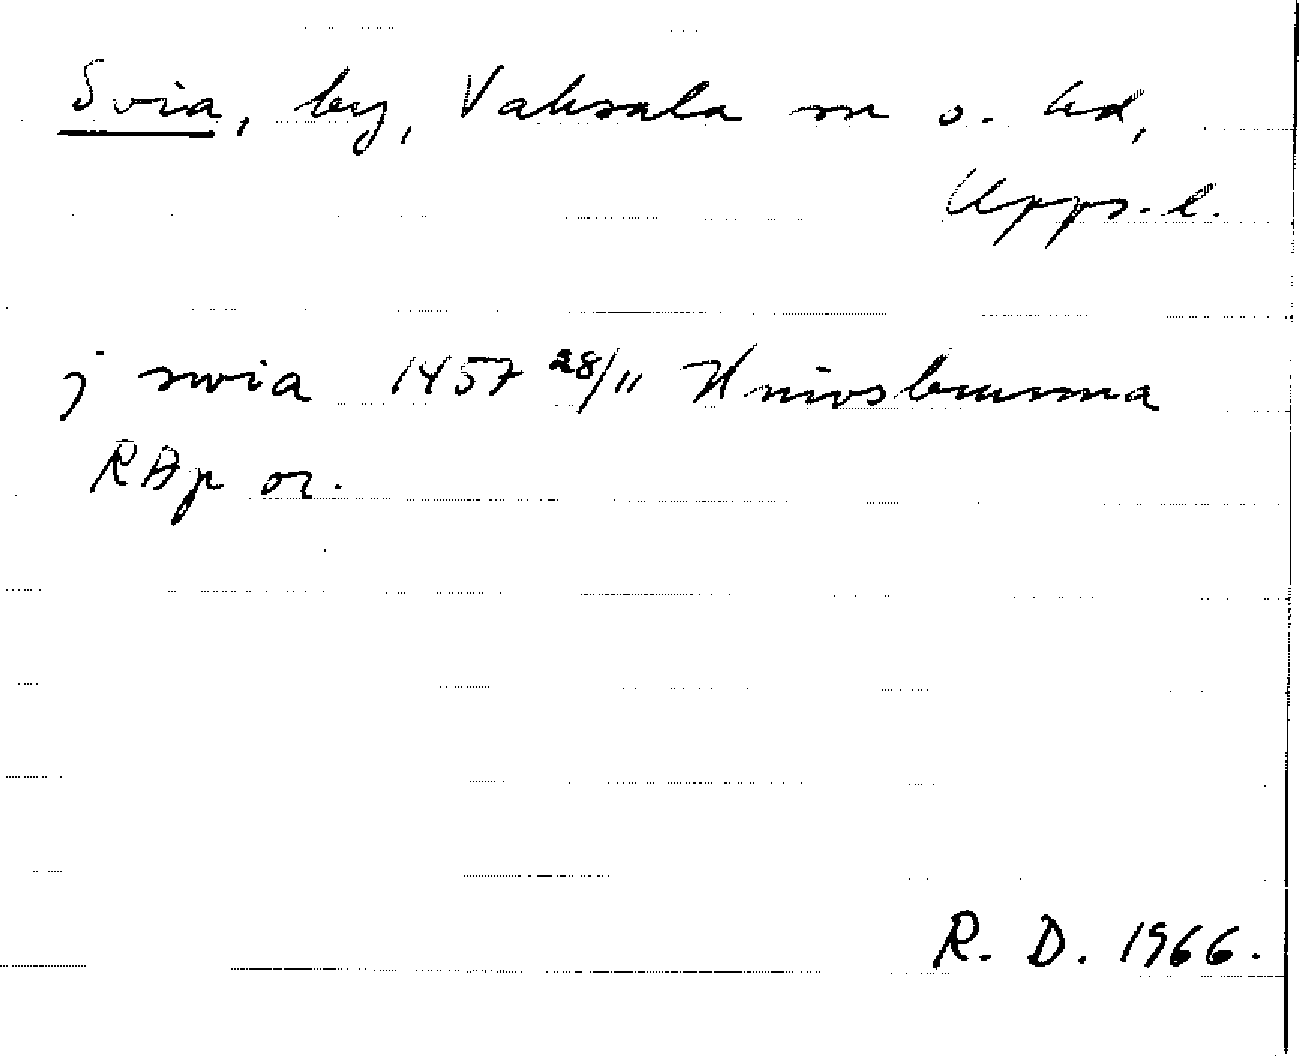 Svia, by, Vaksala sn o. hd,
Upps. l.
j swia 1457 28/11 Knivsbrunna
RBp or.
R. D. 1966.